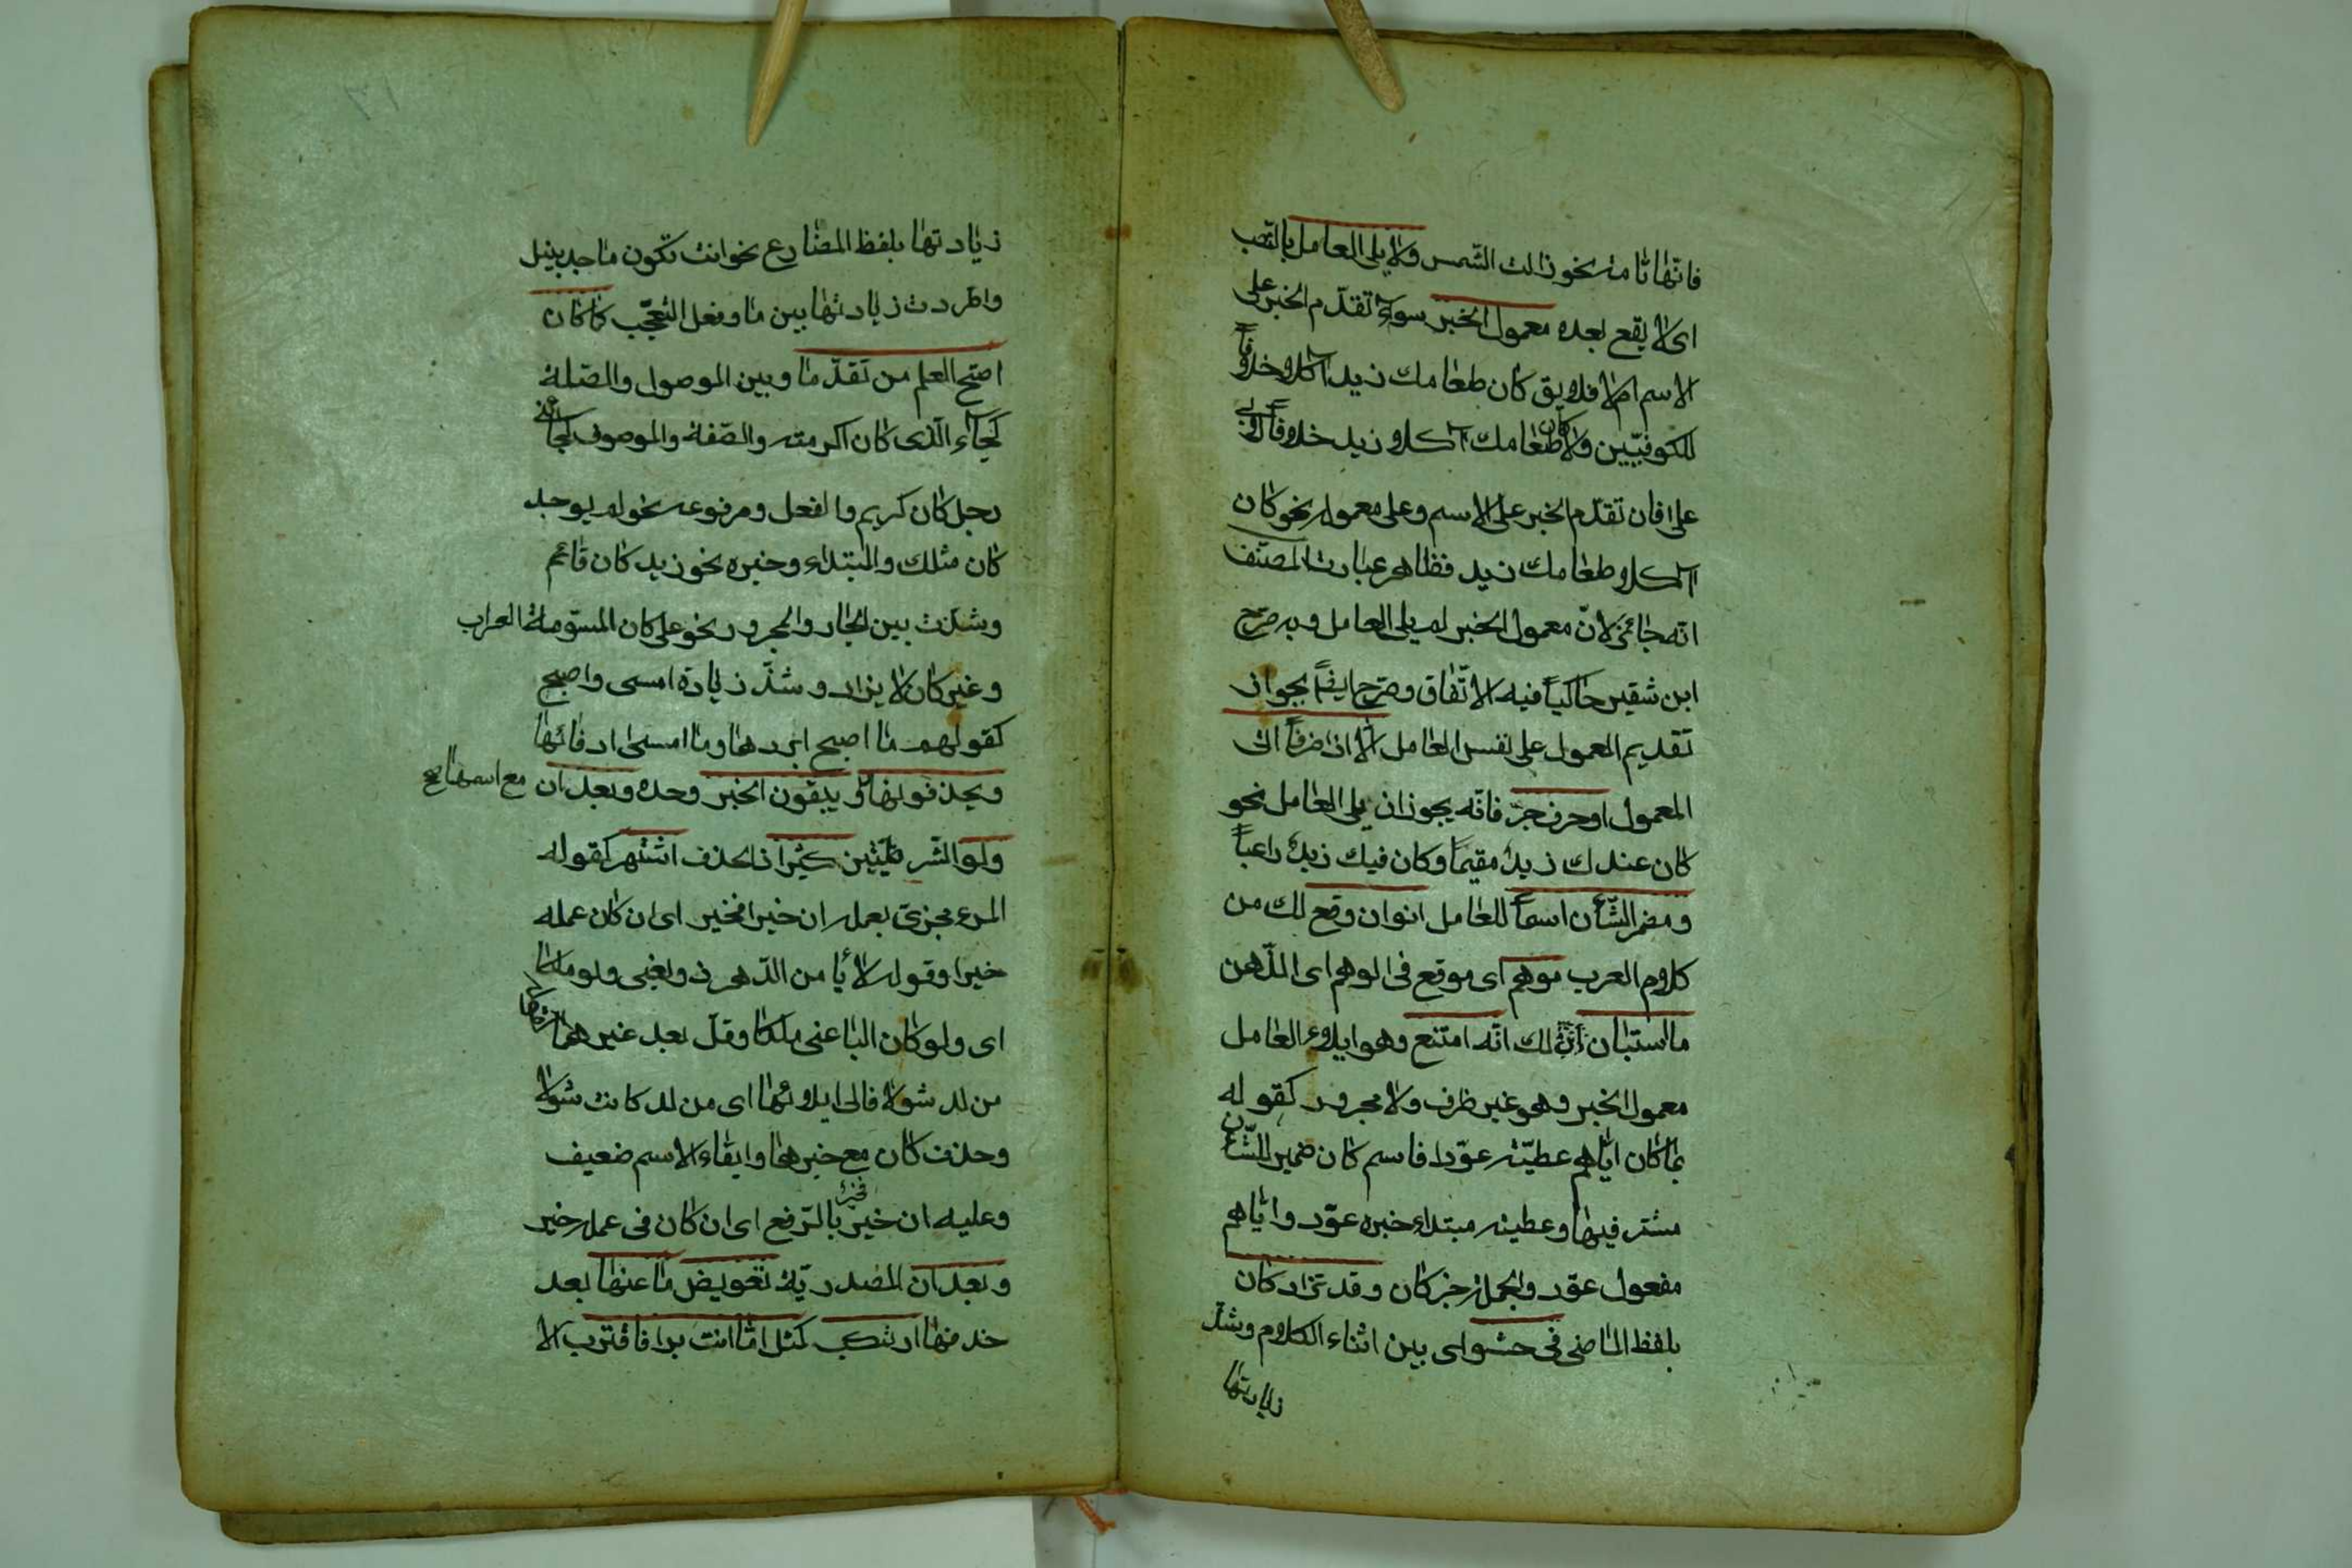 فانّها تامة نحو زالت الشّمس ولا يلي العامل بالنّصب
اى لا يقع بعده معمول الخبر سواء تقدّم الخبر على
الاسم ام لا فلا يق كان طعامك زيد آكلا وخلافاً
للكوفيّين ولا كان طعامك آكلا زيد خلافاً لابى
على فان تقدّم الخبر على الاسم وعلى معموله نحو كان
آكلا طعامك زيد فظاهر عبارت المصنّف
انّه جائز لانّ معمول الخبر لم يلى العامل وبه صرّح
ابن شقير حاكياً فيه الاتّفاق وصرّح ايضاً بجواز
تقديم المعمول على نفس العامل الّا اذا ضرفاً اتى
المعمول او حرف جرّ فانّه يجوز ان يلى العامل نحو
كان عندك زيدٌ مقيماً وكان فيك زيدٌ راغباً
ومضمر الشّأن اسماً للعامل انوان وقع لك من
كلام العرب موهم اى موقع فى الوهم اى الذّهن
ما استبان انّه لك انّه امتنع وهو ايلاء العامل
معمول الخبر وهو غير ظرف ولا مجرور كقوله
بما كان ايّاهم عطيّة عوّدا فاسم كان ضمير الشّأن
مشتر فيها وعطيته مبتداء خبره عوّد وايّاهم
مفعول عوّد والجملة خبر كان وقد تزاد كان
بلفظ الماضى فى حشو اى بين اثناء الكلام وشذّ
زيادتها
٣١
زيادتها بلفظ المضارع نحو انت تكون ماجد نبيل
واطّردت زيادتها بين ما وفعل التّعجّب كما كان
اصحّ العلم من تقدّما وبين الموصول والصّلة
كجاء الّذى كان اكرمته والصّفة والموصوف كجائنى
رجل كان كريم والفعل ومرفوعه نحو لم يوجد
كان مثلك والمبتداء وخبره نحو زيد كان قائم
وشذّت بين الجار والمجرور نحو على كان المسوّمة العراب
وغير كان لا يزاد وشذّ زيادة امسى واصبح
كقولهم ما اصبح ابردها وما امسى ادفائها
ويحذفونها ويبقون الخبر وحده وبعد ان
مع اسمها صح
ولو الشّرطيّتين كثيرا ذا الحذف اشتهر كقوله
المرء مجزىّ بعمله ان خيرا فخير اى ان كان عمله
خيرا وقوله لا يأمن الدّهر ذو بغى ولو ملكا
اى ولو كان الباغى ملكا وقلّ بعد غيرهما
من لد شولا فالى ايلائها اى من لد كانت شولا
وحذف كان مع خبرها وابقاء الاسم ضعيف
وعليه ان خيرٌ فخير بالرّفع اى ان كان فى عمله خير
وبعد ان المصدريّة تعويض ما عنها بعد
حذفها ارتكب كمثل امّا انت برا فاقترب الا